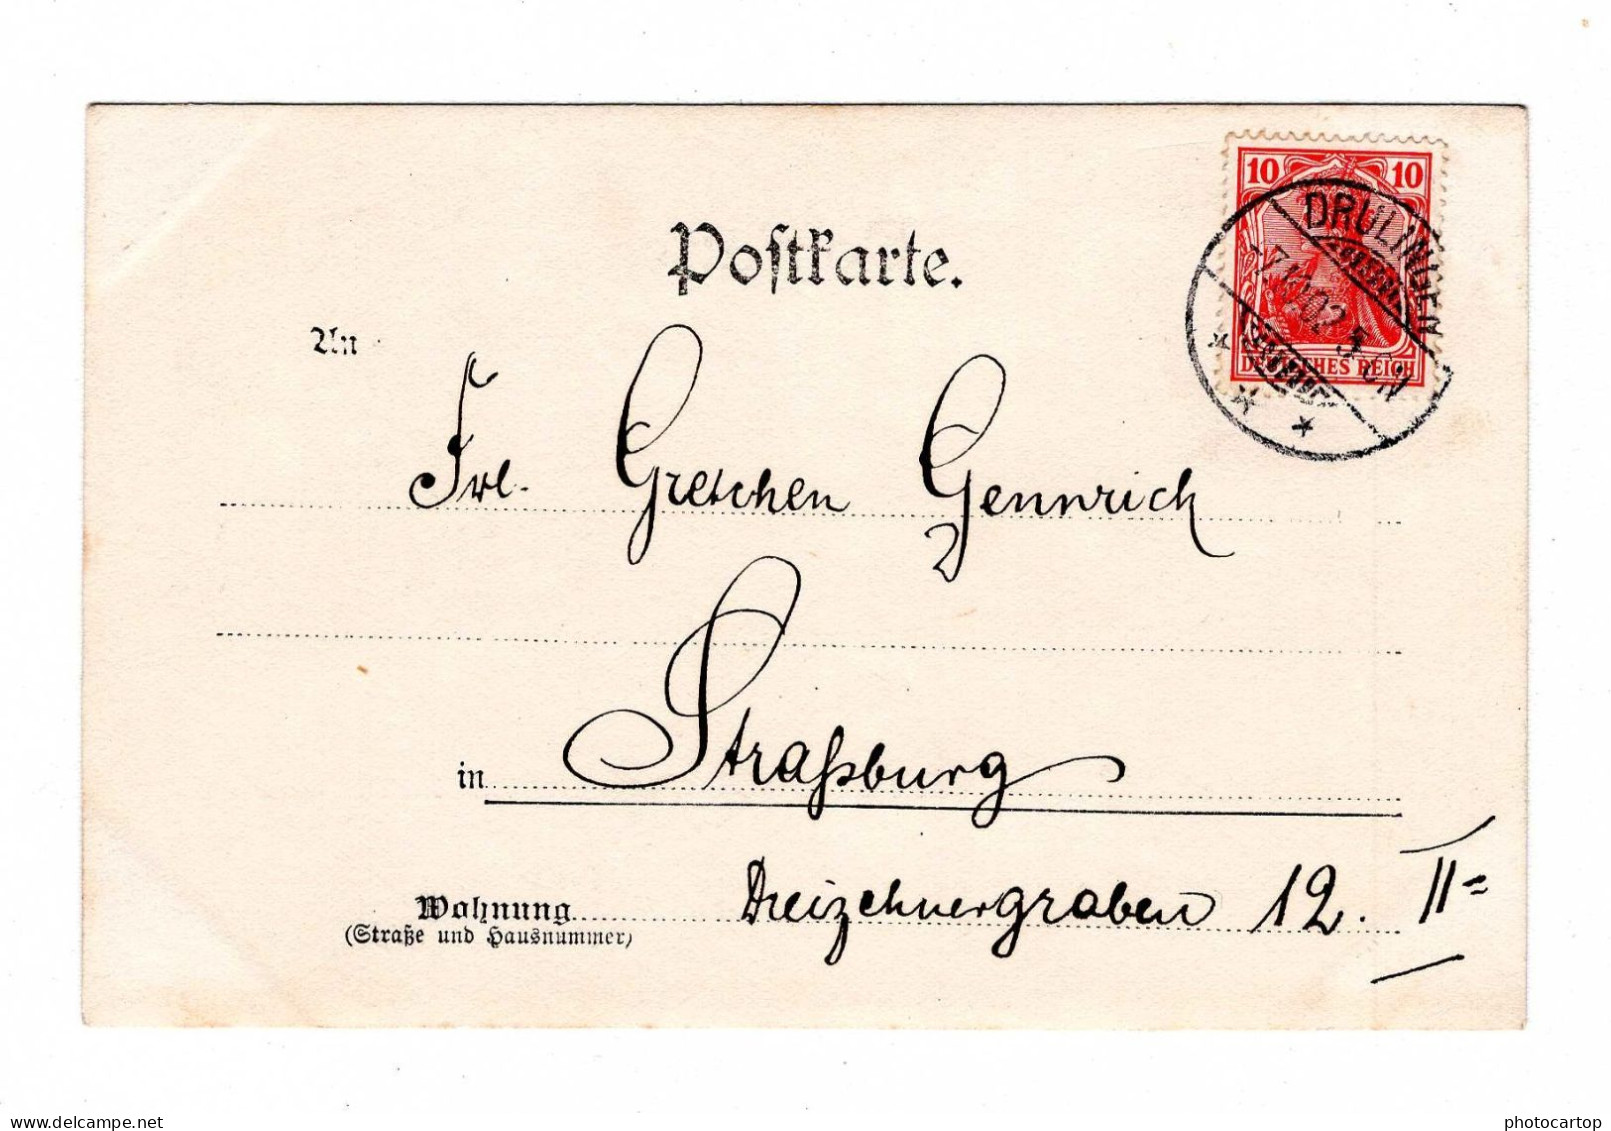 Postkarte.
10 10
DEUTSCHES REICH
DRULINGEN
An
Frl. Gretchen Gennrich
in Straßburg
Dreizehnergraben 12. II=
Wohnung
(Straße und Hausnummer)
delcampe.net
photocartop